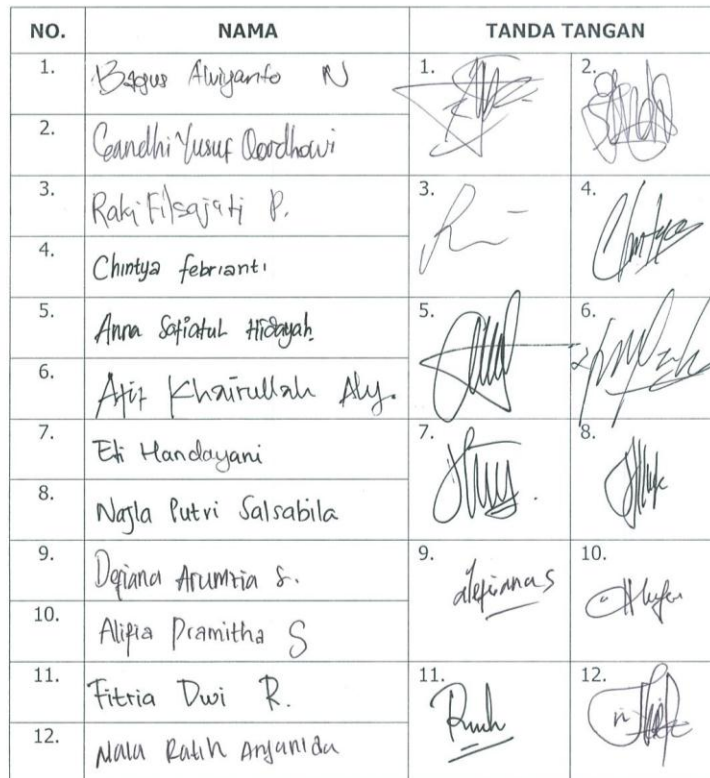 NO. NAMA TANDA TANGAN
1. Bagus Alwiyanto N 1. 2.
2. Gandhi Yusuf Qordhowi
3. Raki Filsajati P. 3. 4. Chintya
4. Chintya febrianti
5. Anna Safiatul Hidayah 5. 6.
6. Afif Khairullah Aly.
7. Eti Handayani 7. 8.
8. Najla Putri Salsabila
9. Defiana Arumzia S. 9. defianas 10.
10. Alifia Pramitha S
11. Fitria Dwi R. 11. 12.
12. Nala Ratih Anjanida